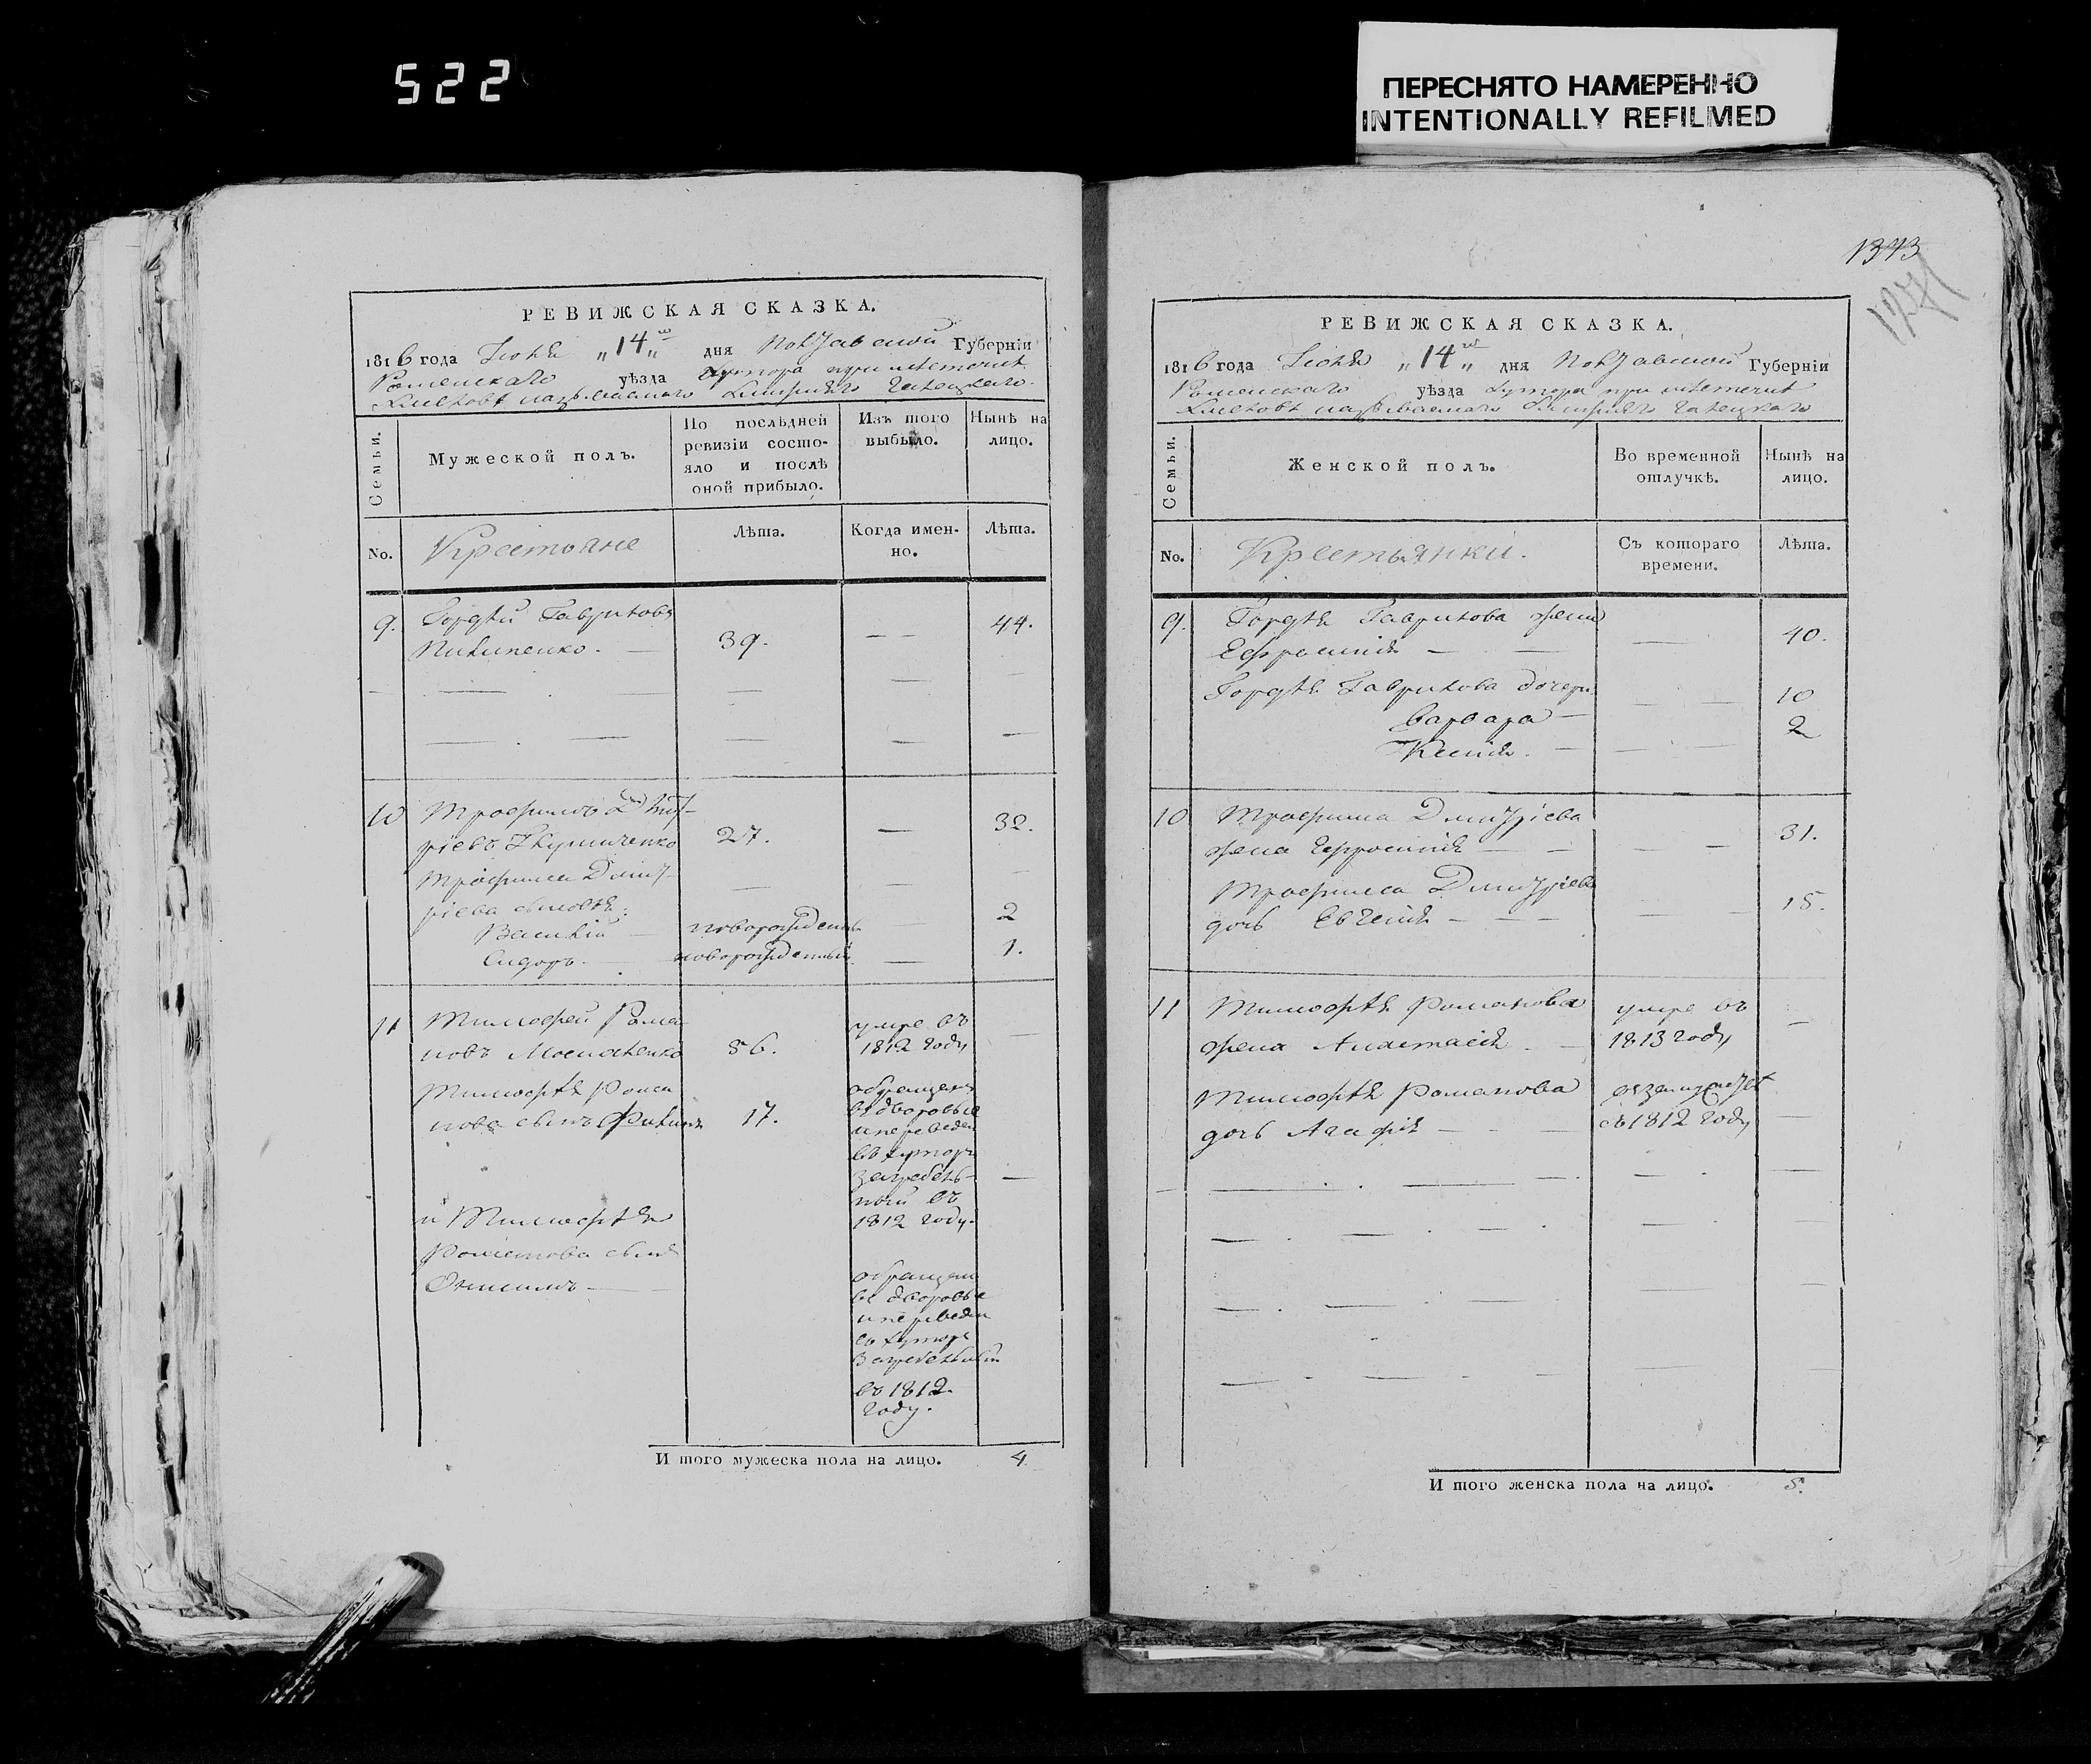 522
ПЕРЕСНЯТО НАМЕРЕННО
INTENTIONALLY REFILMED
РЕВИЖСКАЯ СКАЗКА.
1816 года Іюня „14„ го дня Полтавской Губерніи
Роменскаго уѣзда хутора при мѣстечкѣ
называемаго
Семьи.
Мужеской полъ.
По послѣдней
ревизіи состо-
яло и послѣ
оной прибыло.
Изъ того
выбыло.
Нынѣ на
лицо.
No.
Крестьяне
Лѣта.
Когда имен-
но.
Лѣта.
9. Гордѣй Гавриловъ 44.
Пилипенко. — 39. — —
10 Трофимъ Дмит- 32.
ріевъ 27. —
Трофима Дмит-
ріева сыновья:
Василій — новорожденный — 2
Сидоръ. новорожденный — 1.
11 Тимофей Рома- умре въ —
новъ 56. 1812 году
Тимофѣя Рома- обращенъ
нова сынъ Филипъ 17. въ дворовые
и переведен
въ хуторъ
—
ный въ
1812 году.
и Тимофѣя
Романова сынъ
Онисимъ —
обращен
въ дворовые
и переведен
въ хуторъ
въ 1812.
году.
И того мужеска пола на лицо. 4
1373
РЕВИЖСКАЯ СКАЗКА.
1816 года Іюня „14„ го дня Полтавской Губерніи
Роменскаго уѣзда хутора при мѣстечкѣ
называемаго
Семьи.
Женской полъ.
Во временной
отлучкѣ.
Нынѣ на
лицо.
No.
Крестьянки.
Съ котораго
времени.
Лѣта.
9. Гордѣя Гаврилова жена
Ефросинія — — — 40.
Гордѣя Гаврилова дочери
Варвара — — — 10
Ксенія. — — — 2
10 Трофима Дмитріева
жена Ефросинія — — — — 31.
Трофима Дмитріева
дочь Евгенія — — — — — 15.
11 Тимофѣя Романова умре въ —
жена Анастасія — 1813 году
Тимофѣя Романова въ замужествѣ
дочь Агафія — — — съ 1812 году —
И того женска пола на лицо. 5.